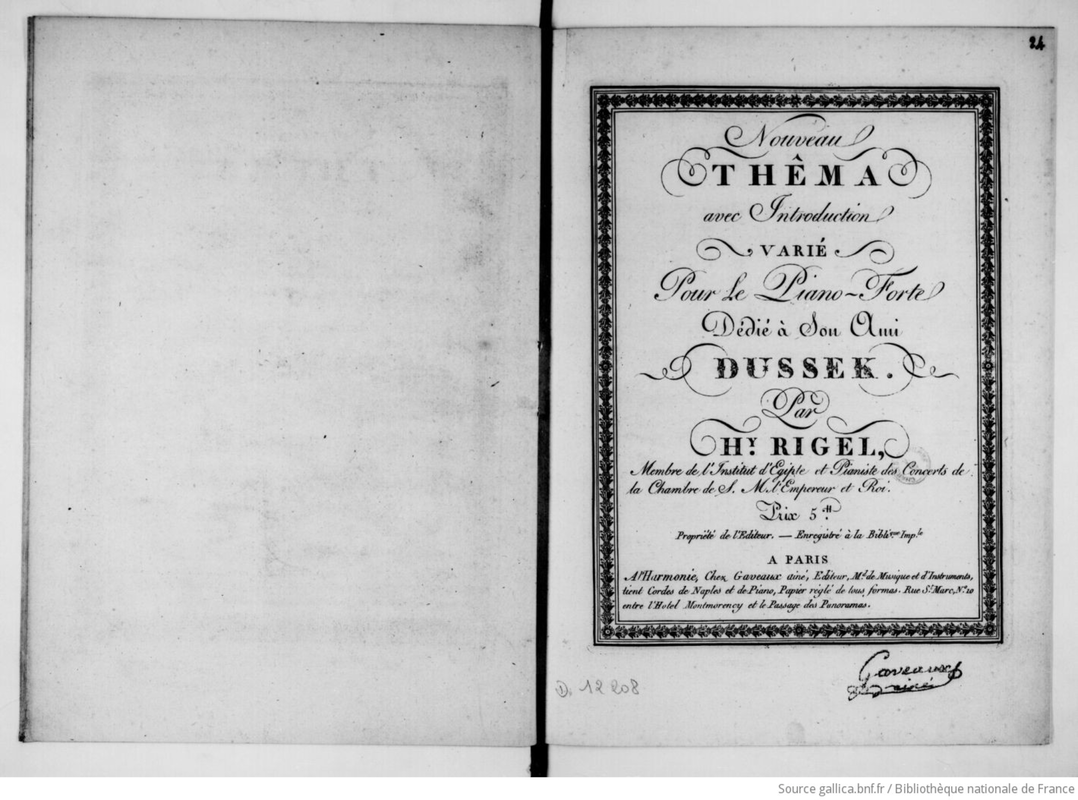 24
Nouveau
THÊMA
avec Introduction
VARIÉ
Pour Le Piano-Forte
Dédié à Son Ami
DUSSEK.
Par
Hy. RIGEL,
Membre de l'Institut d'Egipte et Pianiste des Concerts de
la Chambre de S. M. l'Empereur et Roi.
Prix 5tt
Propriété de l'Editeur. — Enregistré à la Biblique Imple
A PARIS
A l'Harmonie, Chez Gaveaux ainé, Editeur, Md. de Musique et d'Instruments,
tient Cordes de Naples et de Piano, Papier réglé de tous formas. Rue St. Marc, No. 10
entre l'Hotel Montmorency et le Passage des Panoramas.
Gaveaux
ainé
D. 12 208
Source gallica.bnf.fr / Bibliothèque nationale de France